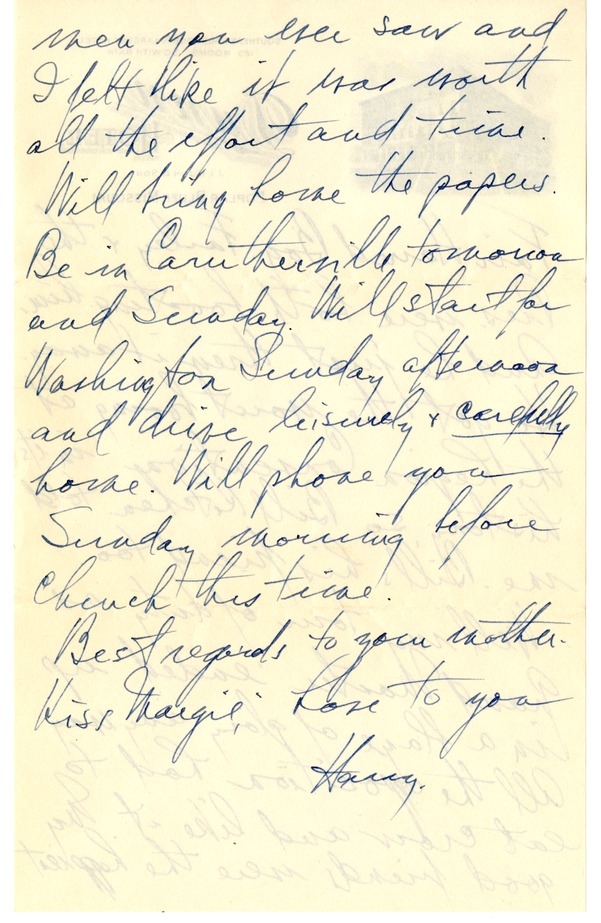 men you ever saw and
I felt like it was worth
all the effort and time.
Will bring home the papers.
Be in Caruthersville tomorrow
and Sunday. Will start for
Washington Sunday afternoon
and drive leisurely & carefully
home. Will phone you
Sunday morning before
church this time.
Best regards to your mother.
Kiss Margie, love to you
Harry.